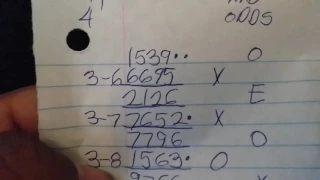 4 ODDS
1539·· O
3-6 6695 X
2126 E
3-7 7652· X
7796 O
3-8 1563· O